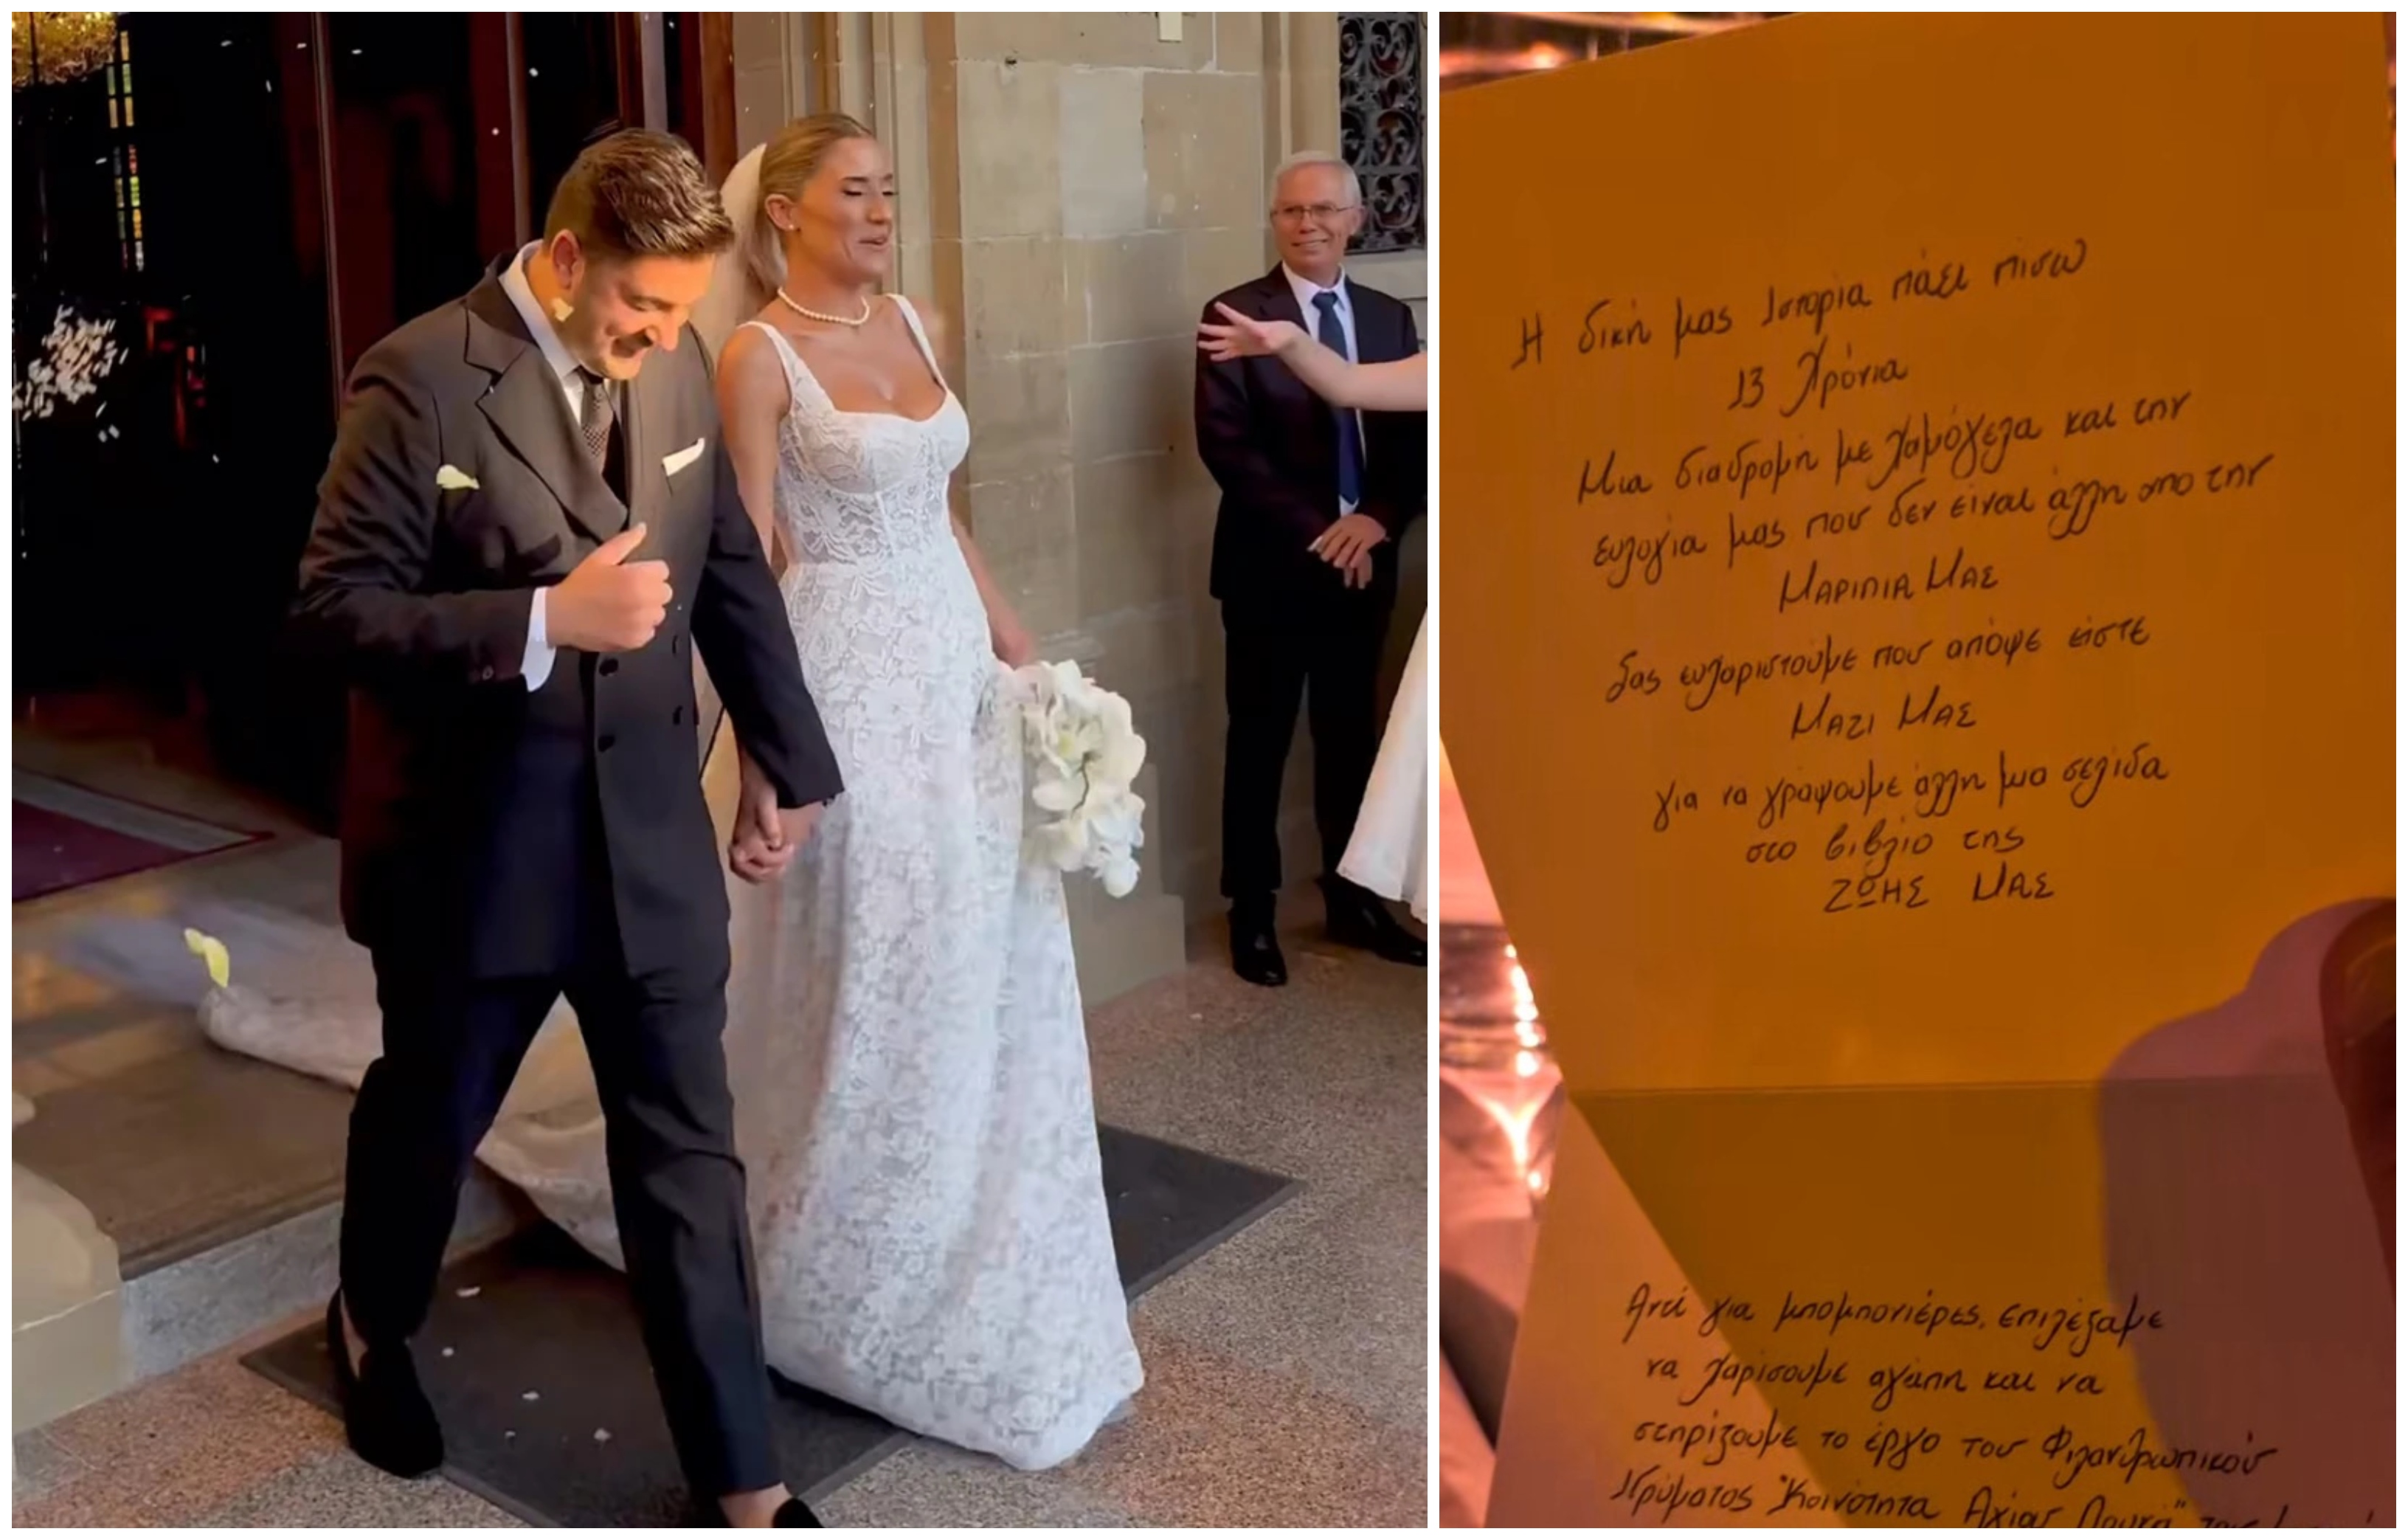 Η δική μας Ιστορία πάει πισω
13 Χρόνια
Μια διαδρομή με χαμόγελα και την
ευλογία μας που δεν είναι άλλη απο την
ΜΑΡΙΠΙΑ ΜΑΣ
Σας ευχαριστούμε που απόψε είστε
ΜΑΖΙ ΜΑΣ
για να γράψουμε άλλη μια σελίδα
στο βιβλίο της
ΖΩΗΣ ΜΑΣ
Αντί για μπομπονιέρες, επιλέξαμε
να χαρίσουμε αγάπη και να
στηρίξουμε το έργο του Φιλανθρωπικού
Ιδρύματος "Κοινότητα Αγίας